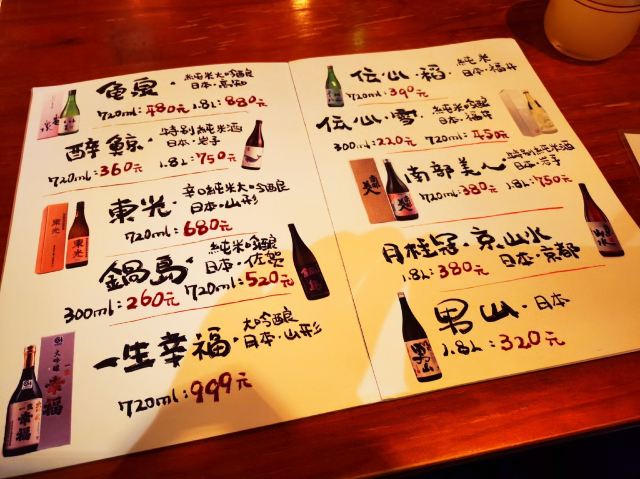 亀泉・純米大吟醸
日本・高知
720ml:480元 1.8L:880元
醉鯨・特別純米酒
日本・岩手
720ml:360元 1.8L:750元
東光・辛口純米大吟醸
日本・山形
720ml:680元
鍋島・純米吟醸
日本・佐賀
300ml:260元 720ml:520元
一生幸福・大吟醸
日本・山形
720ml:999元
伝心・稲・純米
日本・福井
720ml:390元
伝心・雪・純米吟醸
日本・福井
300ml:220元 720ml:450元
南部美人・特別純米酒
日本・岩手
720ml:380元 1.8L:750元
月桂冠・京山水
1.8L:380元 日本・京都
男山・日本
1.8L:320元